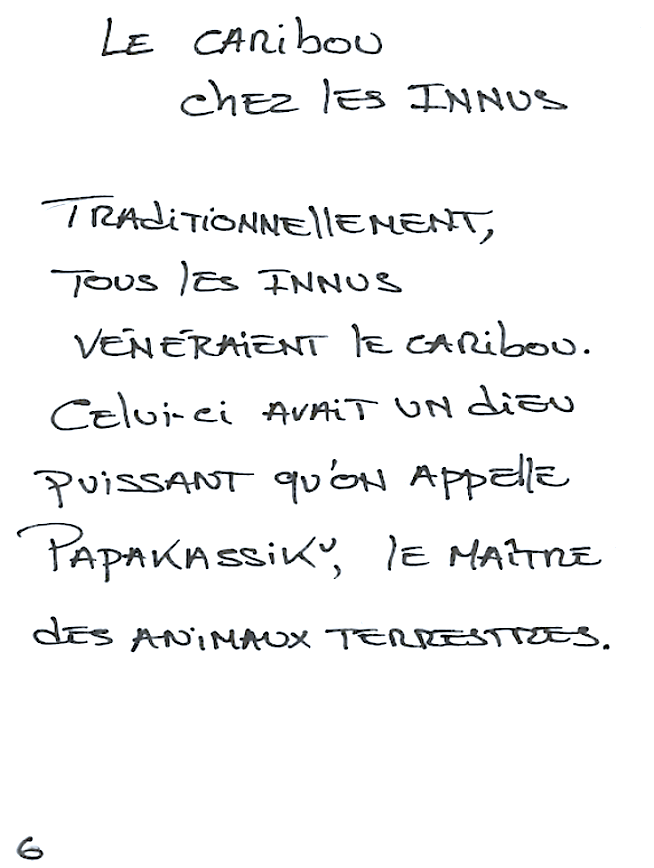 LE CARIBOU
CHEZ LES INNUS
TRADITIONNELLEMENT,
TOUS LES INNUS
VÉNÉRAIENT LE CARIBOU.
CELUI-CI AVAIT UN DIEU
PUISSANT QU'ON APPELLE
PAPAKASSIKᵘ, LE MAÎTRE
DES ANIMAUX TERRESTRES.
6